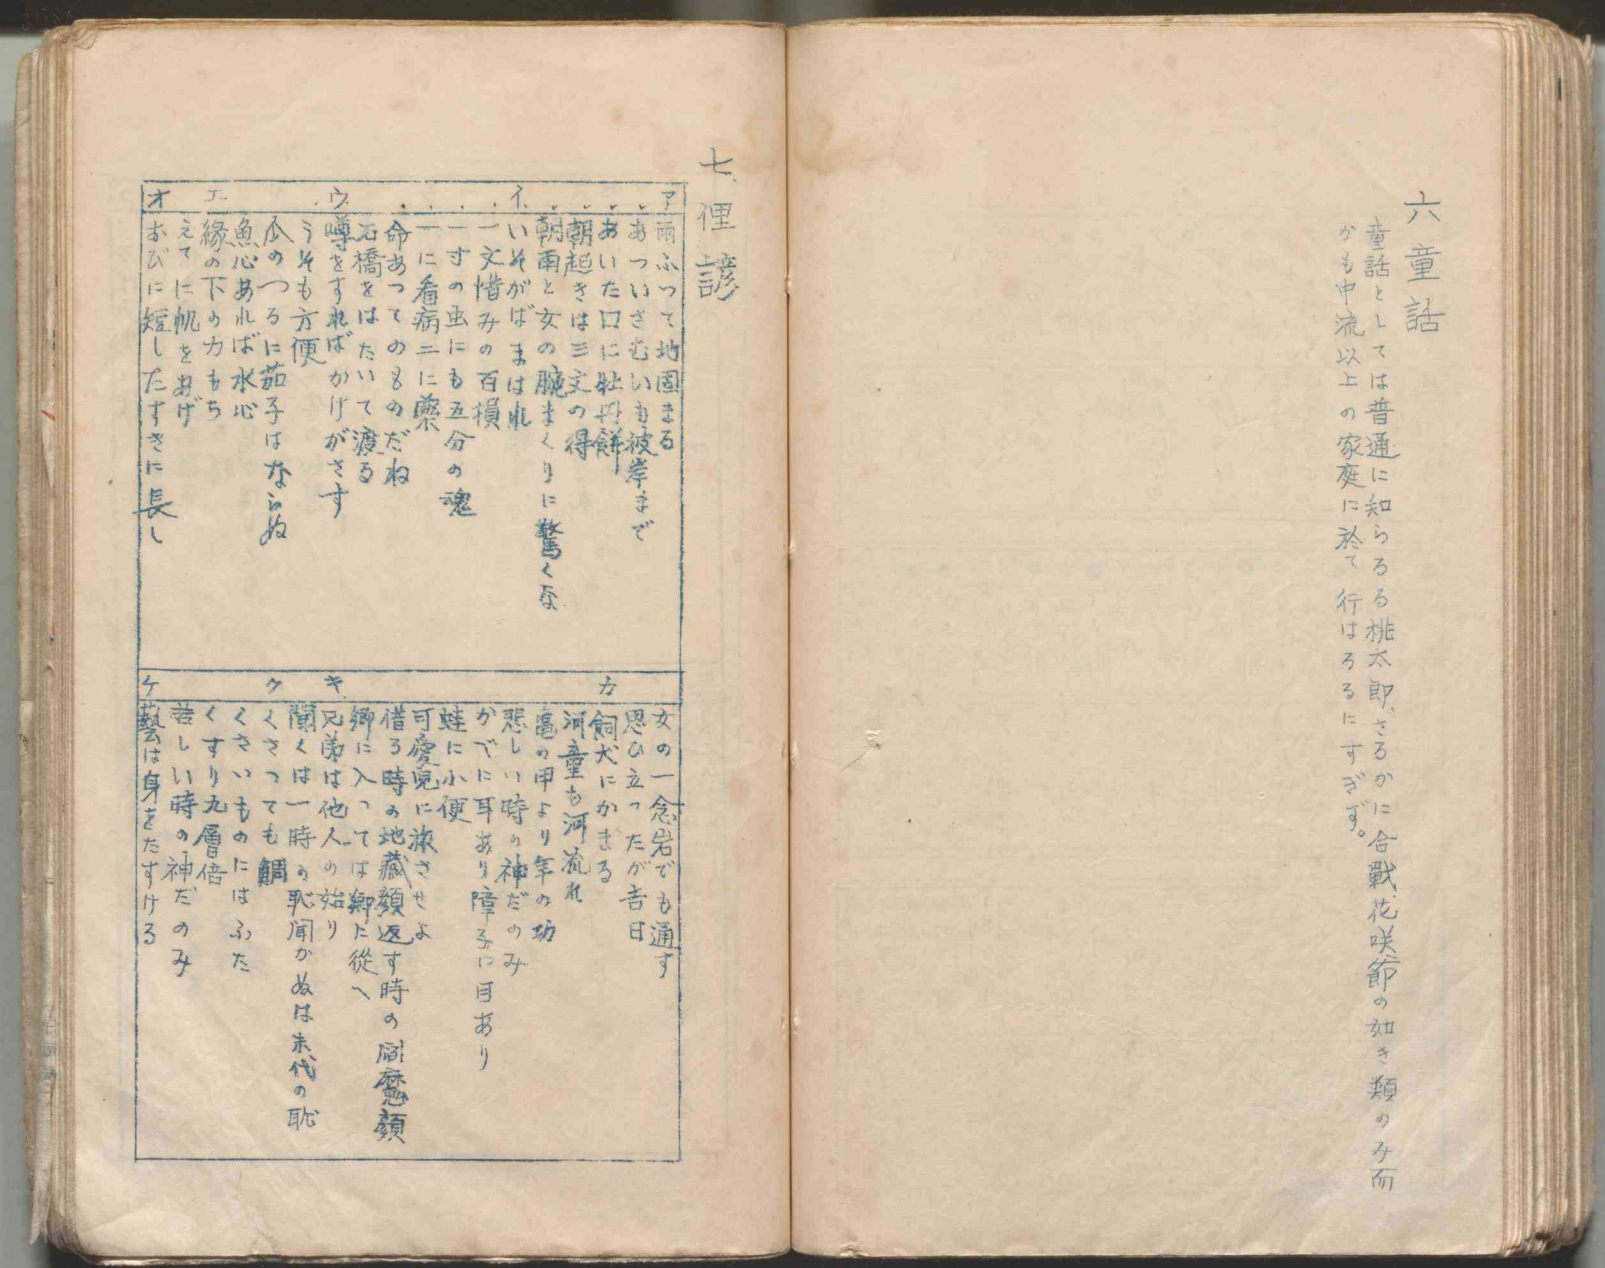 六 童話
童話としては普通に知らるる桃太郎、さるかに合戰、花咲節の如き類のみ而
かも中流以上の家庭に於て行はるるにすぎず。
七、俚諺
ア
雨ふつて地固まる
あついさむいも彼岸まで
あいた口に牡丹餅
朝起きは三文の得
朝雨と女の腕まくりに驚くな
イ
いそがばまはれ
一文惜みの百損
一寸の虫にも五分の魂
一に看病二に藥
命あつてのものだね
石橋をはたいて渡る
ウ
噂をすればかげがさす
うそも方便
瓜のつるに茄子はならぬ
魚心あれば水心
エ
縁の下の力もち
えてに帆をあげ
オ
おびに短したすきに長し
女の一念岩でも通す
思ひ立つたが吉日
カ
飼犬にかまる
河童も河流れ
亀の甲より年の功
悲しい時の神だのみ
かべに耳あり障子に目あり
蛙に小便
可愛兒に旅させよ
借る時の地藏顔返す時の閻魔顔
郷に入つては郷に從へ
キ
兄弟は他人の始り
聞くは一時の恥聞かぬは末代の恥
ク
くさつても鯛
くさいものにはふた
くすり九層倍
苦しい時の神だのみ
ケ
藝は身をたすける